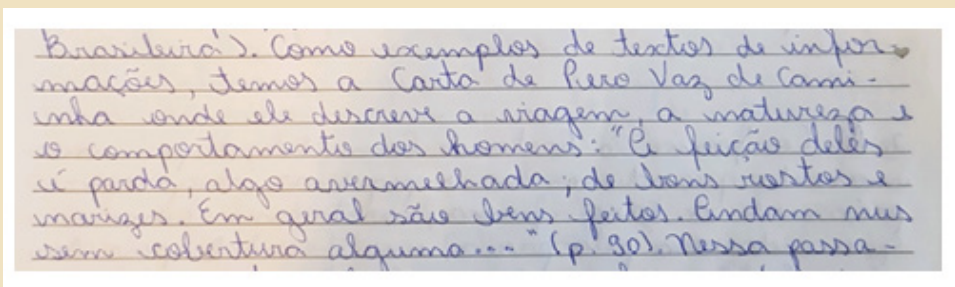 Brasileira"). Como exemplos de textos de infor-
mações, temos a Carta de Pero Vaz de Cami-
nha onde ele descreve a viagem, a natureza e
o comportamento dos homens: "A feição deles
é parda, algo avermelhada; de bons rostos e
narizes. Em geral são bens feitos. Andam nus
sem cobertura alguma..." (p. 30). Nessa passa-